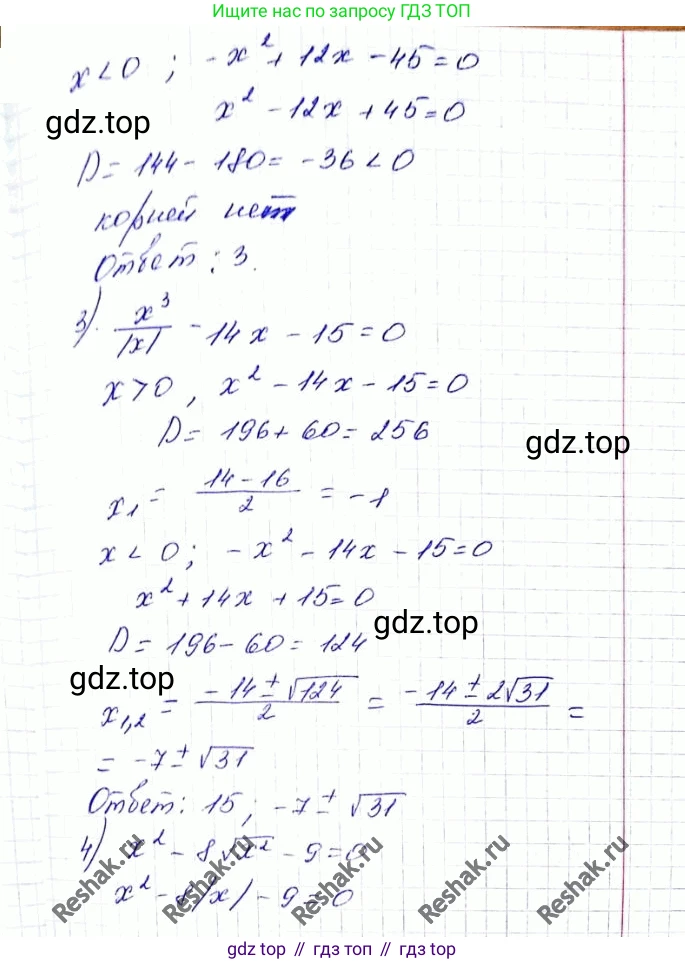 Ищите нас по запросу ГДЗ ТОП
x < 0 ; -x² + 12x - 45 = 0
x² - 12x + 45 = 0
gdz.top
D = 144 - 180 = -36 < 0
корней нет
Ответ: 3.
3) x³/|x| - 14x - 15 = 0
x > 0, x² - 14x - 15 = 0
D = 196 + 60 = 256
gdz.top
x₁ = (14 - 16)/2 = -1
x < 0; -x² - 14x - 15 = 0
x² + 14x + 15 = 0
gdz.top
D = 196 - 60 = 124
gdz.top
x₁,₂ = (-14 ± √124)/2 = (-14 ± 2√31)/2 =
= -7 ± √31
Ответ: 15; -7 ± √31
4) x² - 8√x² - 9 = 0
x² - 8|x| - 9 = 0
Reshak.ru Reshak.ru Reshak.ru Reshak.ru Reshak.ru
gdz top // гдз топ // gdz top